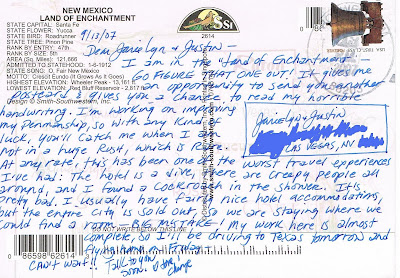 NEW MEXICO
LAND OF ENCHANTMENT
STATE CAPITAL: Santa Fe
STATE FLOWER: Yucca
STATE BIRD: Roadrunner
STATE TREE: Pinon Pine
RANK BY ENTRY: 47th
RANK BY SIZE: 5th
AREA (Sq. Miles): 121,666
ADMITTED TO STATEHOOD: 1-6-1912
STATE SONG: O, Fair New Mexico
MOTTO: Crescit Eundo (It Grows As It Goes)
HIGHEST ELEVATION: Wheeler Peak - 13,161 ft.
LOWEST ELEVATION: Red Bluff Reservoir - 2,817
Design © Smith-Southwestern, Inc.
2614
9/13/07
Dear Janie Lyn & Justin -
I am in the "Land of Enchantment"
GO FIGURE THAT ONE OUT! It gives me
an opportunity to send you another
postcard & gives you a chance to read my horrible
handwriting. I'm working on improving
my penmanship, so with any kind of
luck, you'll catch me when I am
not in a huge rush, which is rare
At any rate, this has been one of the worst travel experiences
I've had: The hotel is a dive, there are creepy people all
around, and I found a cockroach in the shower. It is
pretty bad. I usually have fairly nice hotel accomodations,
but the entire city is sold out, so we are staying where we
could find a room - BIG MISTAKE! My work here is almost
complete, so I'll be driving to Texas tomorrow and
flying home on Friday
Can't wait!! Talk to you
soon.
Janie Lyn & Justin
LAS VEGAS, NV
DO NOT WRITE BELOW THIS LINE
0 86598 62614